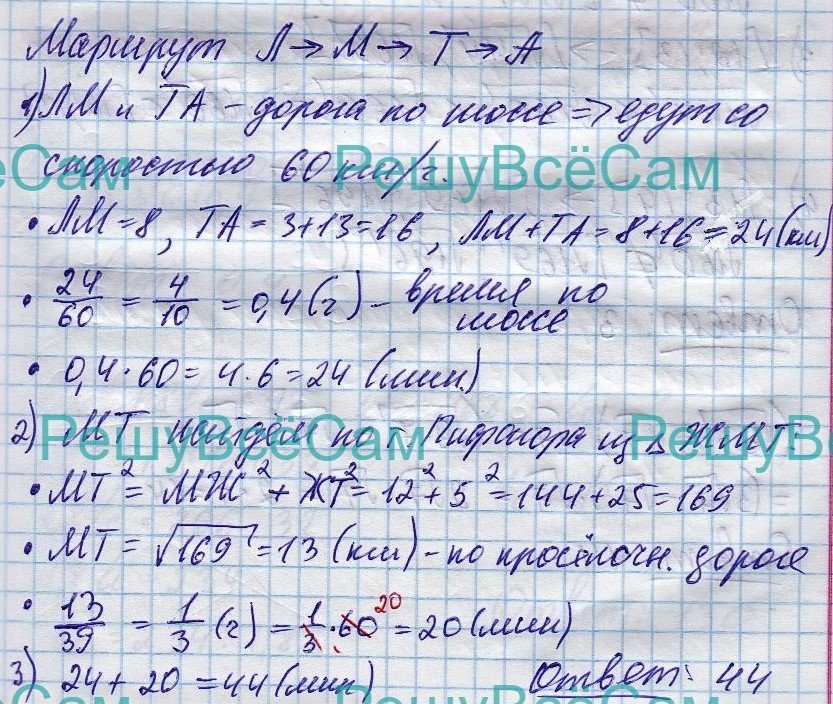 Маршрут Л→М→Т→А
1) ЛМ и ТА – дорога по шоссе => едут со
скоростью 60 км/ч.
РешуВсёСам
• ЛМ=8, ТА=3+13=16, ЛМ+ТА=8+16=24(км)
• 24/60 = 4/10 = 0,4(ч) – время по шоссе
• 0,4·60=4·6=24 (мин.)
2) МТ найдём по т Пифагора из △ЖМТ.
РешуВсёСам РешуВсёСам
• МТ²=МЖ²+ЖТ²=12²+5²=144+25=169
• МТ=√169=13 (км) – по просёлочн. дороге
• 13/39 = 1/3 (ч) = 1/3·60 20 = 20(мин)
3) 24+20=44(мин) Ответ: 44
РешуВсёСам